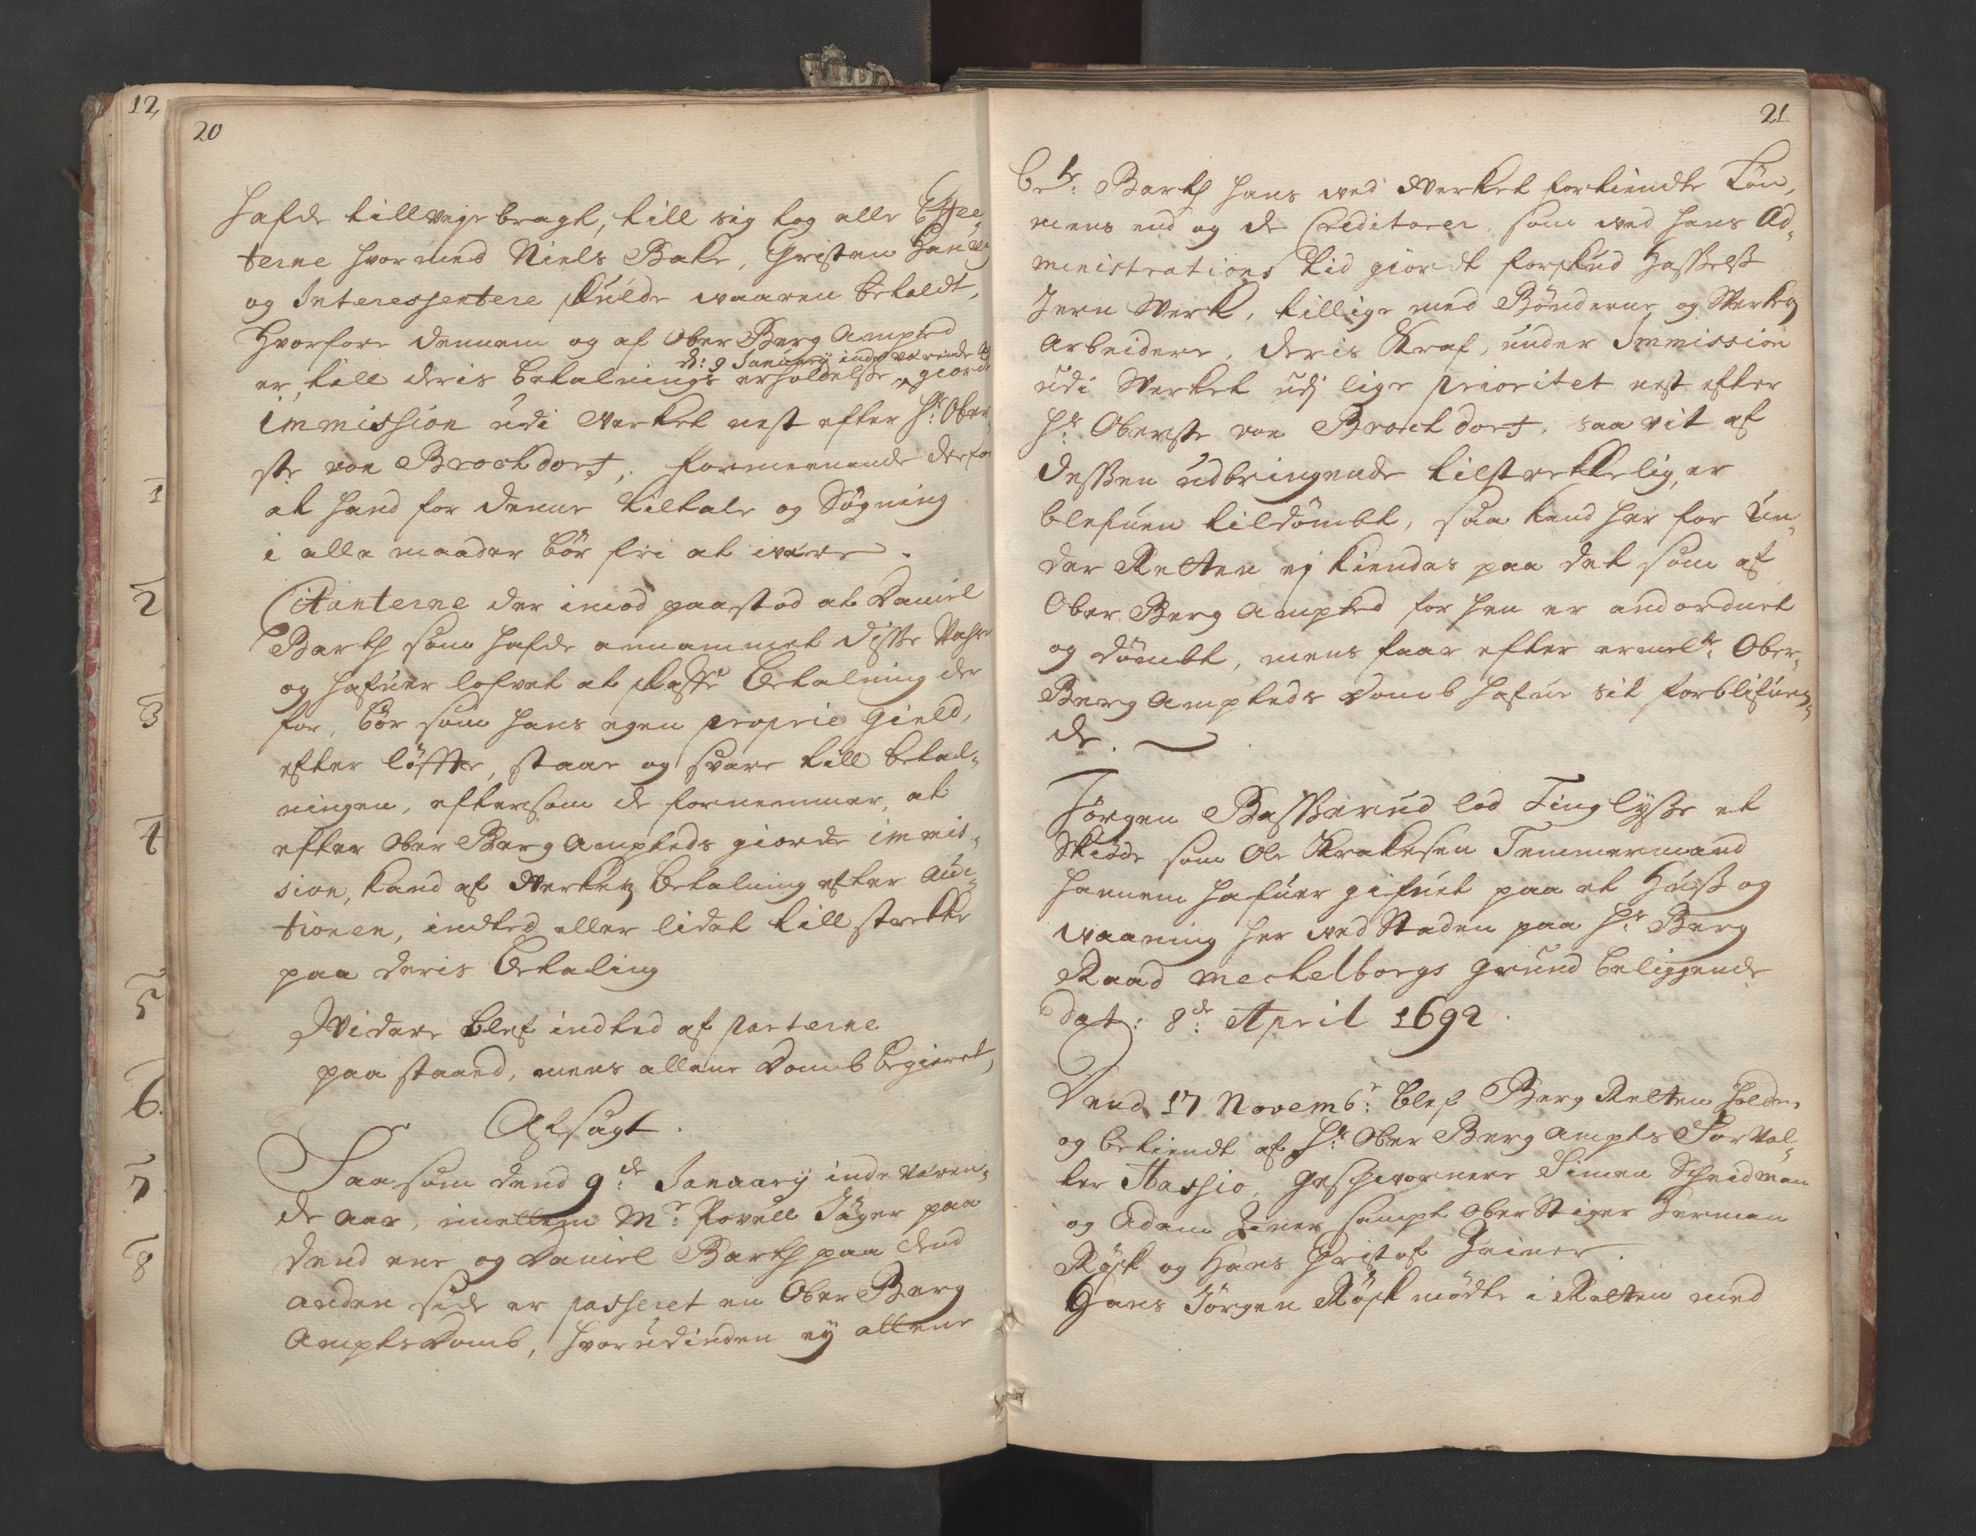 12,
20
hafde till veje bragt, till sig tog alle Effec,
terne hvormed Niels Bake, Christen Hansen
og Interessentere skulde vaaren betaldt,
Hvorfore dennem og af Ober Berg Amptet
d: 9 January indeværende A
er, till deris betalnings erholdelse, giorde
immission udi Verket nest efter Hr: Ober,
ste von Brockdorf, formeenende derfor
at hand for denne tiltale og Søgning
i alle maader bør fri at være.
Citanterne der imod paastod at Daniel
Barth som hafde annammet disse Vahre
og hafuer lofvet at skaffe Betalning der
for, bør som hans egen proprie gield,
efter løffte, staae og svare till betal-
ningen, eftersom de fornemmer, at
efter Ober Berg Ampteds giorde immis-
sion, kand af Verketz betalning efter Auc-
tionen, indted eller lidet till strekke
paa deris Betaling
Widere blef indted af parterne
paa staaed, mens allene Domb begieret,
Afsagt.
Saasom dend 9de: January indeveren-
de aar, imellem Mr: Povell Jäger paa
dend ene og Daniel Barth paa dend
anden side er passeret en Ober Berg
Ampts Domb, hvorudinden ey allene
1
2
3
4
5
6.
7.
8
21
bete: Barth hans ved Werket fortiendte Løn,
mens end og de Creditorer, som ved hans Ad-
ministrations tid giordt forskud Hassels
Jern Werk, tillige med Bønderne og Werketz
Arbeidere, deris Kraf, under Immission
udi Werket udj lige prioritet nest efter
Hr: Oberste von Brockdorf, saa vit af
dessen udbringende tilstrekkelig, er
blefuen tildømbt, saa kand her for Un-
der Retten ej kiendes paa det som af
Ober Berg Amptet for hen er andordnet
og dømbt, mens faar efter ermelte: Ober-
Berg Ampteds Domb hafue sit forblifuen-
de.
Jørgen Basserud lod Tinglysse et
Skiøde som Ole Krakesen Temmermand
hannem hafuer gifuet paa et Huuss og
vaaning her ved Staden paa Hr: Berg
Raad Meckelborgs grund beliggende
dat: 8de: April 1692.
Dend 17 Novembr: blef Berg Retten holden
og betiendt af Hr: Ober Berg Ampts Forval-
ter Stassio, Geschwornere Simen Schridman
og Adam Ziner sampt Ober Stiger Herman
Røsk og Hans Christof Zeiner.
Hans Jørgen Røsk mødte i Retten med